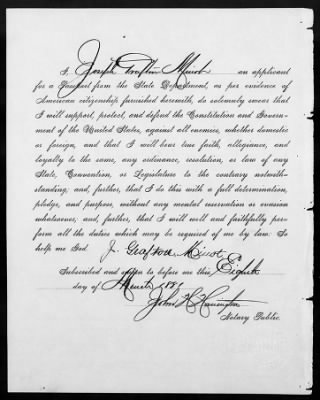 I, Joseph Grafton Minot an applicant
for a Passport from the State Department, as per evidence of
American citizenship furnished herewith, do solemnly swear that
I will support, protect, and defend the Constitution and Govern-
ment of the United States, against all enemies, whether domestic
or foreign, and that I will bear true faith, allegiance, and
loyalty to the same, any ordinance, resolution, or law of any
State, Convention, or Legislature to the contrary notwith-
standing, and, further, that I do this with a full determination,
pledge, and purpose, without any mental reservation or evasion
whatsoever; and, further, that I will well and faithfully per-
form all the duties which may be required of me by law: So
help me God J. Grafton Minot
Subscribed and sworn to before me this Eighth
day of March
John H.
Notary Public.